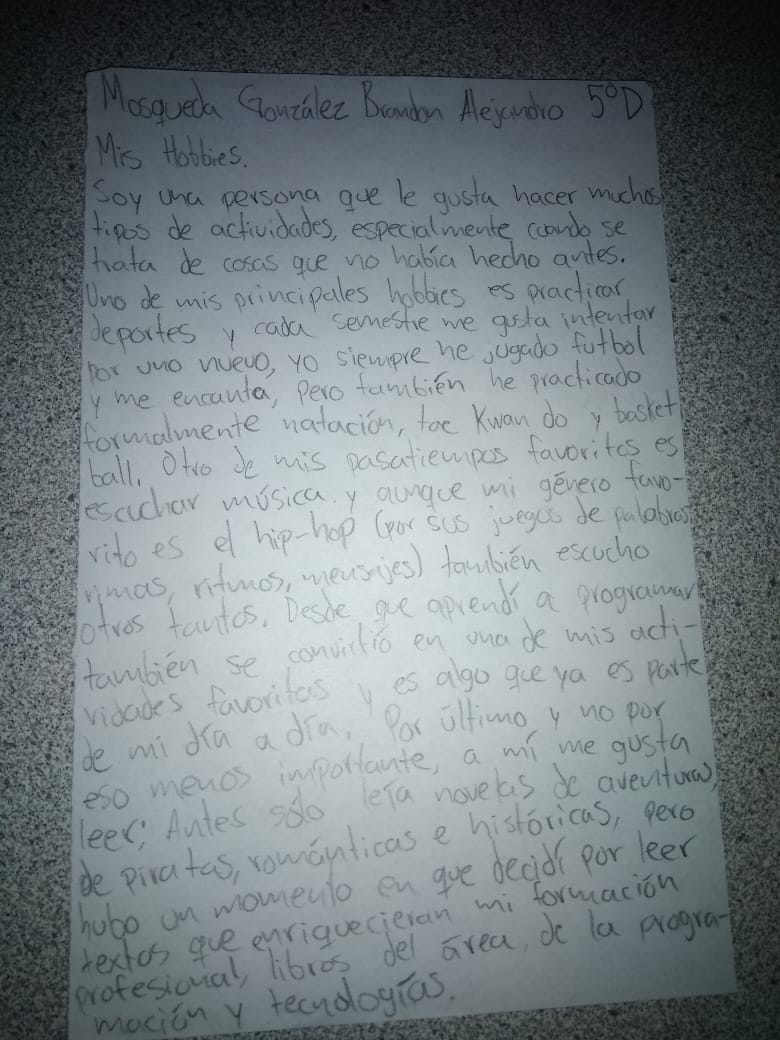 Mosqueda González Brandon Alejandro 5°D
Mis Hobbies.
Soy una persona que le gusta hacer muchos
tipos de actividades, especialmente cuando se
trata de cosas que no había hecho antes.
Uno de mis principales hobbies es practicar
deportes y cada semestre me gusta intentar
por uno nuevo, yo siempre he jugado futbol
y me encanta, pero también he practicado
formalmente natación, tae Kwan do y basket
ball. Otro de mis pasatiempos favoritos es
escuchar música y aunque mi género favo-
rito es el hip-hop (por sus juegos de palabras,
rimas, ritmos, mensajes) también escucho
otros tantos. Desde que aprendí a programar
también se convirtió en una de mis acti-
vidades favoritas y es algo que ya es parte
de mi día a día. Por último y no por
eso menos importante, a mí me gusta
leer; Antes sólo leía novelas de aventuras,
de piratas, románticas e históricas, pero
hubo un momento en que decidí por leer
textos que enriquecieran mi formación
profesional, libros del área, de la progra-
mación y tecnologías.